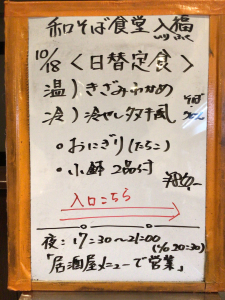 和そば食堂 入福
10/18 <日替定食>
温) きざみわかめ
冷) 冷やし そば
・おにぎり(たらこ)
・小鉢 2品付
入口こちら
夜:17:30~21:00
(L/O 20:30)
「居酒屋メニューで営業」